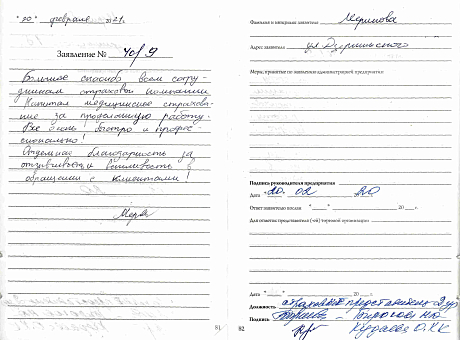 "20" февраля 2021.
Заявление № 40/9
Большое спасибо всем сотру-
дникам страховой компании
Капитал медицинское страхова-
ние за проделанную работу.
Все очень быстро и профес-
сионально!
Отдельная благодарность за
отзывчивость и вежливость в
обращении с клиентами!
81
Фамилия и инициалы заявителя
Адрес заявителя ул Дзержинского
Меры, принятые по заявлению администрацией предприятия:
Подпись руководителя предприятия
Дата "20" 02 20
Ответ заявителю послан "___" ______ 20___ г.
Для отметок представителя (-ей) торговой организации
Дата "___" ______ 20___ г.
Должность страховой представитель 2 ур
Подпись
82